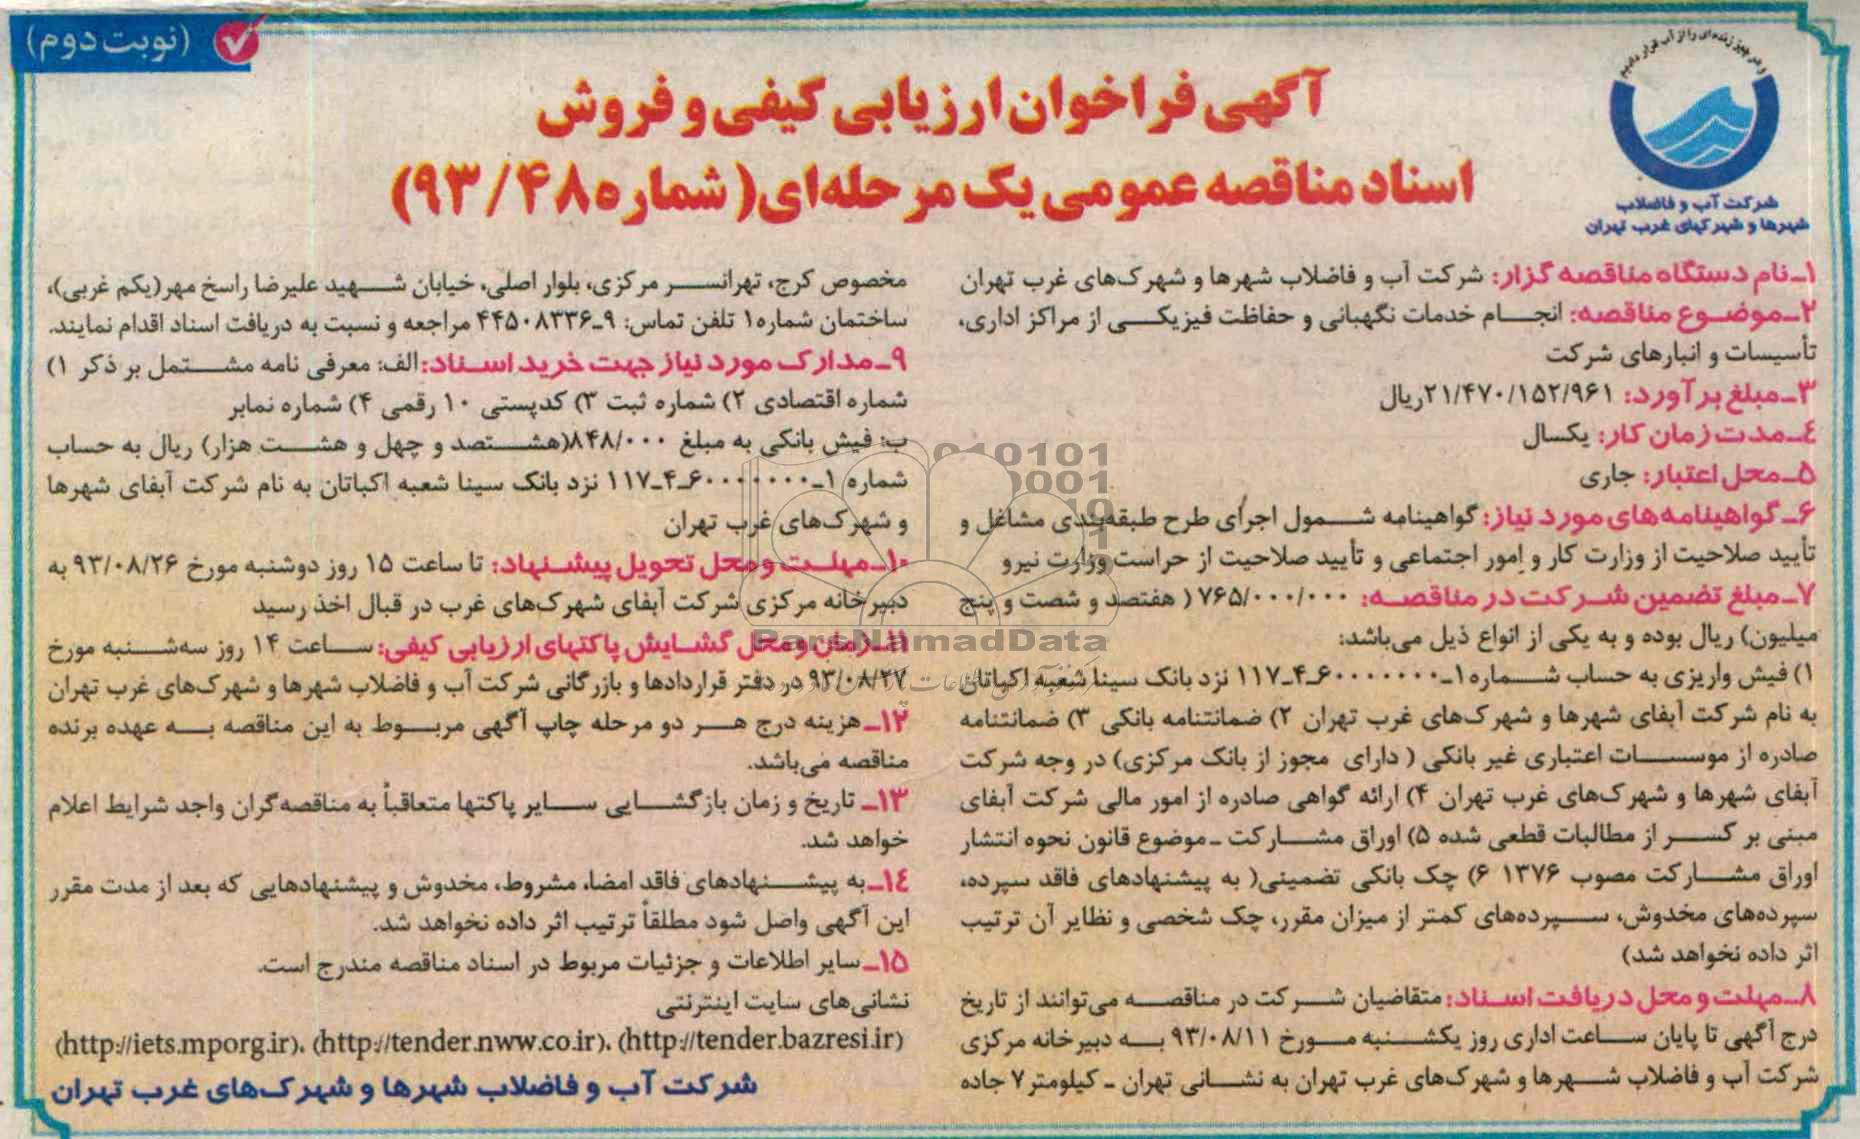 (نوبت دوم)
و هر چیز زنده‌ای را از آب قرار دادیم
شرکت آب و فاضلاب
شهرها و شهرکهای غرب تهران
آگهی فراخوان ارزیابی کیفی و فروش
اسناد مناقصه عمومی یک مرحله‌ای( شماره ۹۳/۴۸)
۱ـ نام دستگاه مناقصه گزار: شرکت آب و فاضلاب شهرها و شهرک‌های غرب تهران
۲ـ موضوع مناقصه: انجام خدمات نگهبانی و حفاظت فیزیکی از مراکز اداری،
تأسیسات و انبارهای شرکت
۳ـ مبلغ برآورد: ۲۱/۴۷۰/۱۵۲/۹۶۱ریال
٤ـ مدت زمان کار: یکسال
۵ـ محل اعتبار: جاری
۶ـ گواهینامه‌های مورد نیاز: گواهینامه شمول اجرای طرح طبقه‌بندی مشاغل و
تأیید صلاحیت از وزارت کار و امور اجتماعی و تأیید صلاحیت از حراست وزارت نیرو
۷ـ مبلغ تضمین شرکت در مناقصه: ۷۶۵/۰۰۰/۰۰۰ ( هفتصد و شصت و پنج
میلیون) ریال بوده و به یکی از انواع ذیل می‌باشد:
۱) فیش واریزی به حساب شماره ۱ـ۶۰۰۰۰۰۰۰ـ۴ـ۱۱۷ نزد بانک سینا شعبه اکباتان
به نام شرکت آبفای شهرها و شهرک‌های غرب تهران ۲) ضمانتنامه بانکی ۳) ضمانتنامه
صادره از موسسات اعتباری غیر بانکی ( دارای مجوز از بانک مرکزی) در وجه شرکت
آبفای شهرها و شهرک‌های غرب تهران ۴) ارائه گواهی صادره از امور مالی شرکت آبفای
مبنی بر کسر از مطالبات قطعی شده ۵) اوراق مشارکت ـ موضوع قانون نحوه انتشار
اوراق مشارکت مصوب ۱۳۷۶ ۶) چک بانکی تضمینی( به پیشنهادهای فاقد سپرده،
سپرده‌های مخدوش، سپرده‌های کمتر از میزان مقرر، چک شخصی و نظایر آن ترتیب
اثر داده نخواهد شد)
۸ـ مهلت و محل دریافت اسناد: متقاضیان شرکت در مناقصه می‌توانند از تاریخ
درج آگهی تا پایان ساعت اداری روز یکشنبه مورخ ۹۳/۰۸/۱۱ به دبیرخانه مرکزی
شرکت آب و فاضلاب شهرها و شهرک‌های غرب تهران به نشانی تهران ـ کیلومتر ۷ جاده
مخصوص کرج، تهرانسر مرکزی، بلوار اصلی، خیابان شهید علیرضا راسخ مهر(یکم غربی)،
ساختمان شماره۱ تلفن تماس: ۹ـ۴۴۵۰۸۳۳۶ مراجعه و نسبت به دریافت اسناد اقدام نمایند.
۹ـ مدارک مورد نیاز جهت خرید اسناد: الف: معرفی نامه مشتمل بر ذکر ۱)
شماره اقتصادی ۲) شماره ثبت ۳) کدپستی ۱۰ رقمی ۴) شماره نمابر
ب: فیش بانکی به مبلغ ۸۴۸/۰۰۰(هشتصد و چهل و هشت هزار) ریال به حساب
شماره ۱ـ۶۰۰۰۰۰۰۰ـ۴ـ۱۱۷ نزد بانک سینا شعبه اکباتان به نام شرکت آبفای شهرها
و شهرک‌های غرب تهران
۱۰ـ مهلت و محل تحویل پیشنهاد: تا ساعت ۱۵ روز دوشنبه مورخ ۹۳/۰۸/۲۶ به
دبیرخانه مرکزی شرکت آبفای شهرک‌های غرب در قبال اخذ رسید
۱۱ـ زمان و محل گشایش پاکتهای ارزیابی کیفی: ساعت ۱۴ روز سه‌شنبه مورخ
۹۳/۰۸/۲۷ در دفتر قراردادها و بازرگانی شرکت آب و فاضلاب شهرها و شهرک‌های غرب تهران
۱۲ـ هزینه درج هر دو مرحله چاپ آگهی مربوط به این مناقصه به عهده برنده
مناقصه می‌باشد.
۱۳ـ تاریخ و زمان بازگشایی سایر پاکتها متعاقباً به مناقصه‌گران واجد شرایط اعلام
خواهد شد.
۱٤ـ به پیشنهادهای فاقد امضا، مشروط، مخدوش و پیشنهادهایی که بعد از مدت مقرر
این آگهی واصل شود مطلقاً ترتیب اثر داده نخواهد شد.
۱۵ـ سایر اطلاعات و جزئیات مربوط در اسناد مناقصه مندرج است.
نشانی‌های سایت اینترنتی
(http://iets.mporg.ir). (http://tender.nww.co.ir). (http://tender.bazresi.ir)
شرکت آب و فاضلاب شهرها و شهرک‌های غرب تهران
ParsNamadData